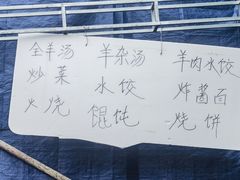 全羊汤 羊杂汤 羊肉水饺
炒菜 水饺 炸酱面
火烧 馄饨 烧饼